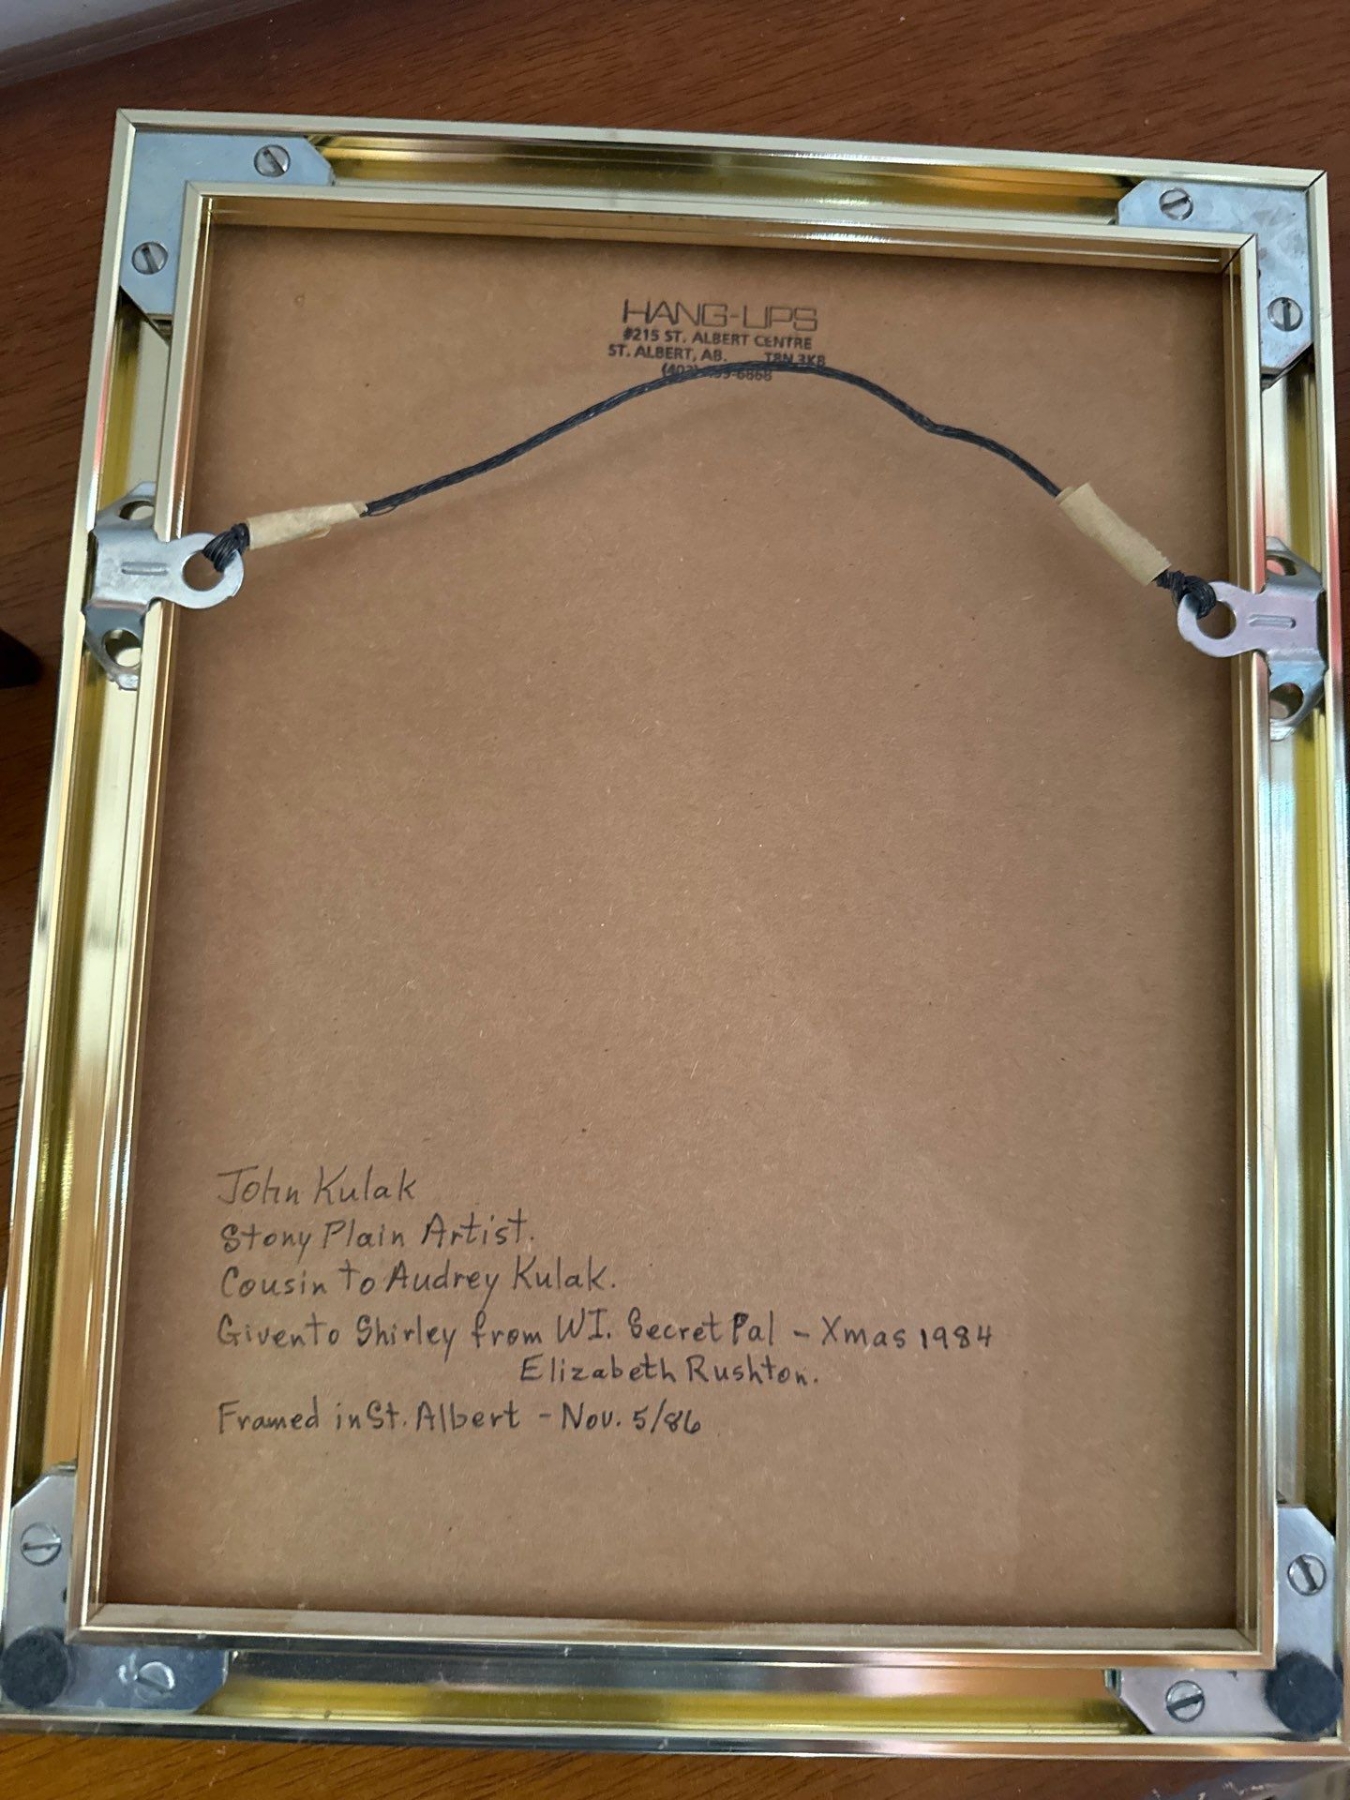 HANG-UPS
#215 ST. ALBERT CENTRE
ST. ALBERT, AB. T8N 3K8
John Kulak
Stony Plain Artist.
Cousin to Audrey Kulak.
Given to Shirley from WI. Secret Pal - Xmas 1984
Elizabeth Rushton.
Framed in St. Albert - Nov. 5/86